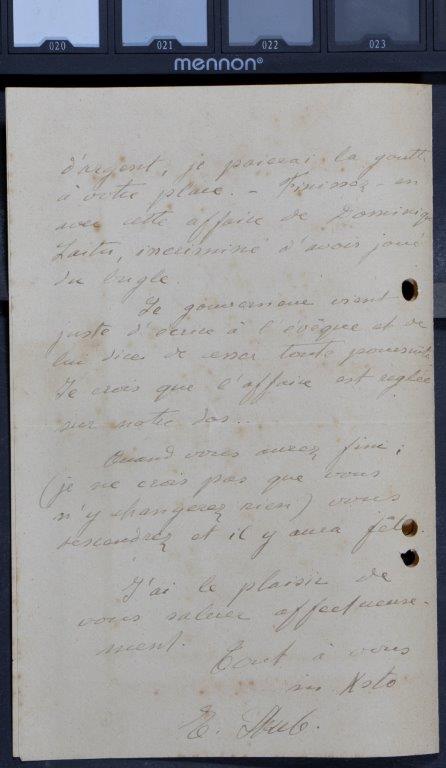 020 021 022 023
mennon®
d'argent, je paierai la goutte
à votre place. - Finissez-en
avec cette affaire de Dominique
incriminé d'avoir joué
du bugle.
Le gouverneur vient
juste d'écrire à l'évêque et de
lui dire de cesser toute poursuite
Je crois que l'affaire est reglée
sur notre dos..
Quand vous aurez fini,
(je ne crois pas que vous
n'y changerez rien) vous
descendrez et il y aura fête.
J'ai le plaisir de
vous saluer affectueuse-
ment.
Tout à vous
in Xsto
E.